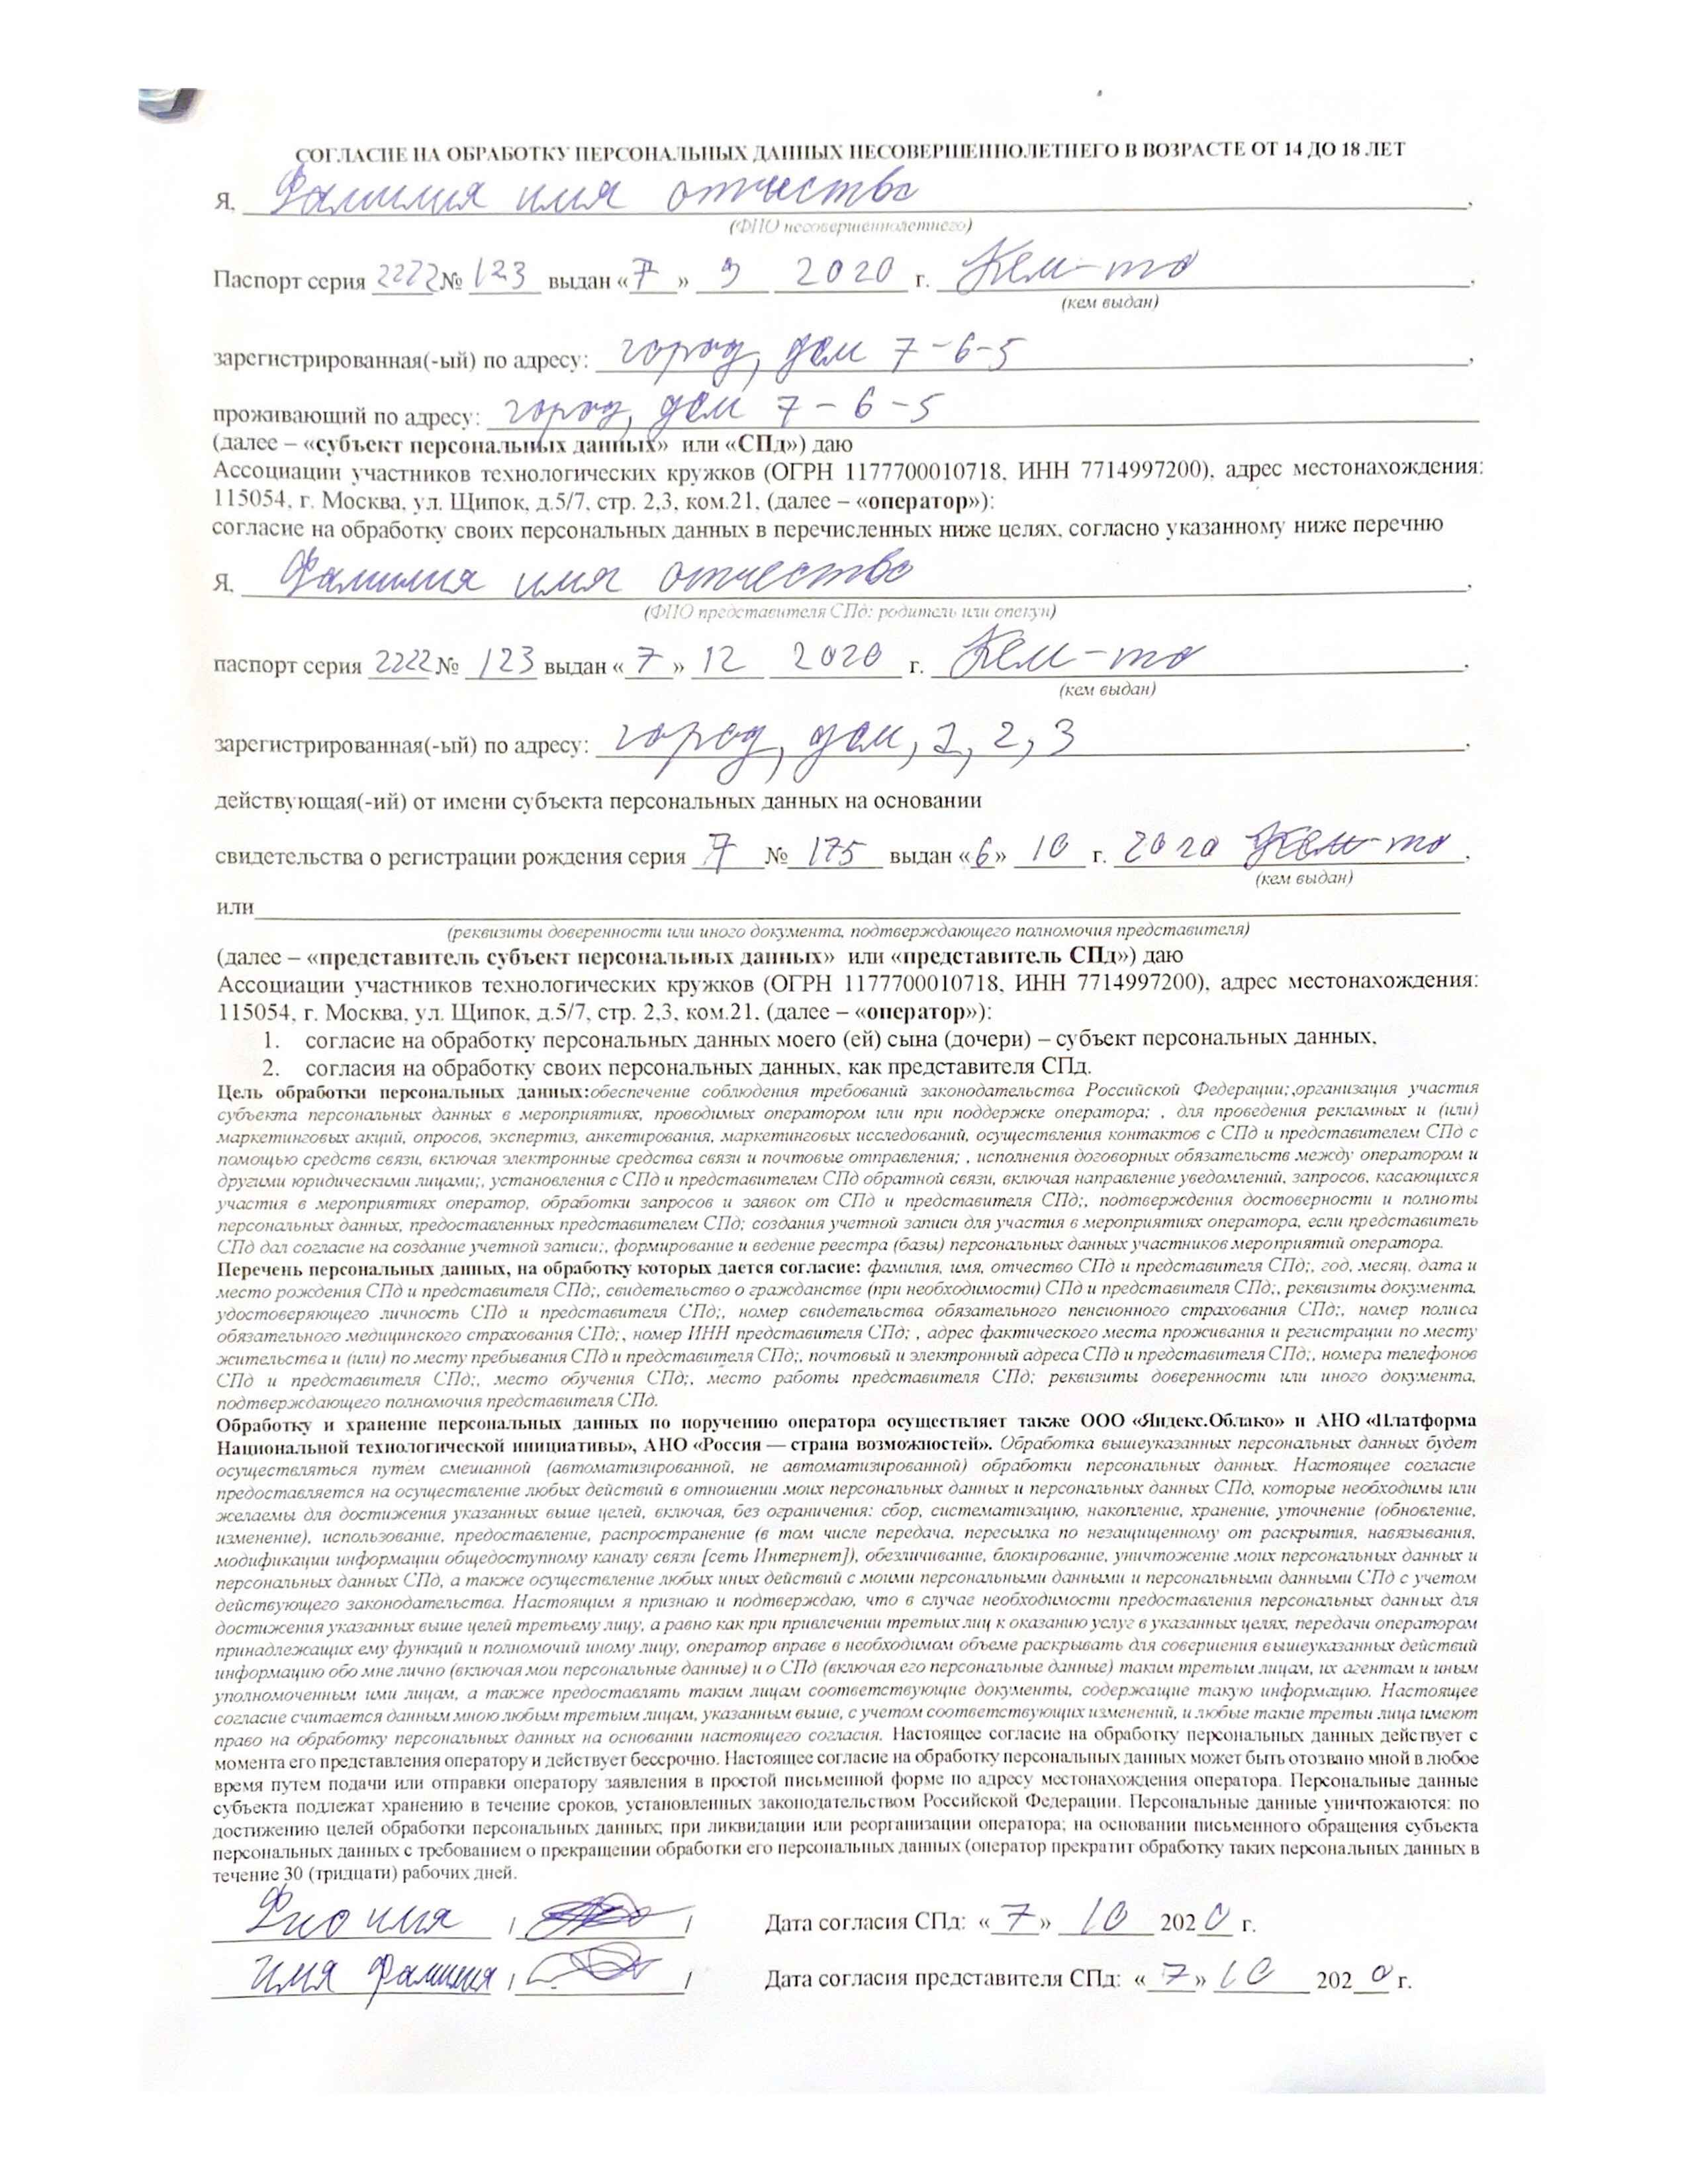 СОГЛАСИЕ НА ОБРАБОТКУ ПЕРСОНАЛЬНЫХ ДАННЫХ НЕСОВЕРШЕННОЛЕТНЕГО В ВОЗРАСТЕ ОТ 14 ДО 18 ЛЕТ
Я, Фамилия имя отчество,
(ФИО несовершеннолетнего)
Паспорт серия 2222 № 123 выдан «7» 9 2020 г. Кем-то,
(кем выдан)
зарегистрированная(-ый) по адресу: город, дом 7-6-5,
проживающий по адресу: город, дом 7-6-5
(далее – «субъект персональных данных» или «СПд») даю
Ассоциации участников технологических кружков (ОГРН 1177700010718, ИНН 7714997200), адрес местонахождения:
115054, г. Москва, ул. Щипок, д.5/7, стр. 2,3, ком.21, (далее – «оператор»):
согласие на обработку своих персональных данных в перечисленных ниже целях, согласно указанному ниже перечню
Я, Фамилия имя отчество,
(ФИО представителя СПд: родитель или опекун)
паспорт серия 2222 № 123 выдан «7» 12 2020 г. Кем-то,
(кем выдан)
зарегистрированная(-ый) по адресу: город, дом, 1, 2, 3,
действующая(-ий) от имени субъекта персональных данных на основании
свидетельства о регистрации рождения серия 7 № 175 выдан «6» 10 г. 2020 Кем-то,
(кем выдан)
или
(реквизиты доверенности или иного документа, подтверждающего полномочия представителя)
(далее – «представитель субъект персональных данных» или «представитель СПд») даю
Ассоциации участников технологических кружков (ОГРН 1177700010718, ИНН 7714997200), адрес местонахождения:
115054, г. Москва, ул. Щипок, д.5/7, стр. 2,3, ком.21, (далее – «оператор»):
1. согласие на обработку персональных данных моего (ей) сына (дочери) – субъект персональных данных,
2. согласия на обработку своих персональных данных, как представителя СПд.
Цель обработки персональных данных:обеспечение соблюдения требований законодательства Российской Федерации;,организация участия
субъекта персональных данных в мероприятиях, проводимых оператором или при поддержке оператора; , для проведения рекламных и (или)
маркетинговых акций, опросов, экспертиз, анкетирования, маркетинговых исследований, осуществления контактов с СПд и представителем СПд с
помощью средств связи, включая электронные средства связи и почтовые отправления; , исполнения договорных обязательств между оператором и
другими юридическими лицами;, установления с СПд и представителем СПд обратной связи, включая направление уведомлений, запросов, касающихся
участия в мероприятиях оператор, обработки запросов и заявок от СПд и представителя СПд;, подтверждения достоверности и полноты
персональных данных, предоставленных представителем СПд; создания учетной записи для участия в мероприятиях оператора, если представитель
СПд дал согласие на создание учетной записи;, формирование и ведение реестра (базы) персональных данных участников мероприятий оператора.
Перечень персональных данных, на обработку которых дается согласие: фамилия, имя, отчество СПд и представителя СПд;, год, месяц, дата и
место рождения СПд и представителя СПд;, свидетельство о гражданстве (при необходимости) СПд и представителя СПд;, реквизиты документа,
удостоверяющего личность СПд и представителя СПд;, номер свидетельства обязательного пенсионного страхования СПд;, номер полиса
обязательного медицинского страхования СПд;, номер ИНН представителя СПд; , адрес фактического места проживания и регистрации по месту
жительства и (или) по месту пребывания СПд и представителя СПд;, почтовый и электронный адреса СПд и представителя СПд;, номера телефонов
СПд и представителя СПд;, место обучения СПд;, место работы представителя СПд; реквизиты доверенности или иного документа,
подтверждающего полномочия представителя СПд.
Обработку и хранение персональных данных по поручению оператора осуществляет также ООО «Яндекс.Облако» и АНО «Платформа
Национальной технологической инициативы», АНО «Россия — страна возможностей». Обработка вышеуказанных персональных данных будет
осуществляться путем смешанной (автоматизированной, не автоматизированной) обработки персональных данных. Настоящее согласие
предоставляется на осуществление любых действий в отношении моих персональных данных и персональных данных СПд, которые необходимы или
желаемы для достижения указанных выше целей, включая, без ограничения: сбор, систематизацию, накопление, хранение, уточнение (обновление,
изменение), использование, предоставление, распространение (в том числе передача, пересылка по незащищенному от раскрытия, навязывания,
модификации информации общедоступному каналу связи [сеть Интернет]), обезличивание, блокирование, уничтожение моих персональных данных и
персональных данных СПд, а также осуществление любых иных действий с моими персональными данными и персональными данными СПд с учетом
действующего законодательства. Настоящим я признаю и подтверждаю, что в случае необходимости предоставления персональных данных для
достижения указанных выше целей третьему лицу, а равно как при привлечении третьих лиц к оказанию услуг в указанных целях, передачи оператором
принадлежащих ему функций и полномочий иному лицу, оператор вправе в необходимом объеме раскрывать для совершения вышеуказанных действий
информацию обо мне лично (включая мои персональные данные) и о СПд (включая его персональные данные) таким третьим лицам, их агентам и иным
уполномоченным ими лицам, а также предоставлять таким лицам соответствующие документы, содержащие такую информацию. Настоящее
согласие считается данным мною любым третьим лицам, указанным выше, с учетом соответствующих изменений, и любые такие третьи лица имеют
право на обработку персональных данных на основании настоящего согласия. Настоящее согласие на обработку персональных данных действует с
момента его представления оператору и действует бессрочно. Настоящее согласие на обработку персональных данных может быть отозвано мной в любое
время путем подачи или отправки оператору заявления в простой письменной форме по адресу местонахождения оператора. Персональные данные
субъекта подлежат хранению в течение сроков, установленных законодательством Российской Федерации. Персональные данные уничтожаются: по
достижению целей обработки персональных данных; при ликвидации или реорганизации оператора; на основании письменного обращения субъекта
персональных данных с требованием о прекращении обработки его персональных данных (оператор прекратит обработку таких персональных данных в
течение 30 (тридцати) рабочих дней.
Фио имя / / Дата согласия СПд: «7» 10 2020 г.
Имя Фамилия / / Дата согласия представителя СПд: «7» 10 2020 г.